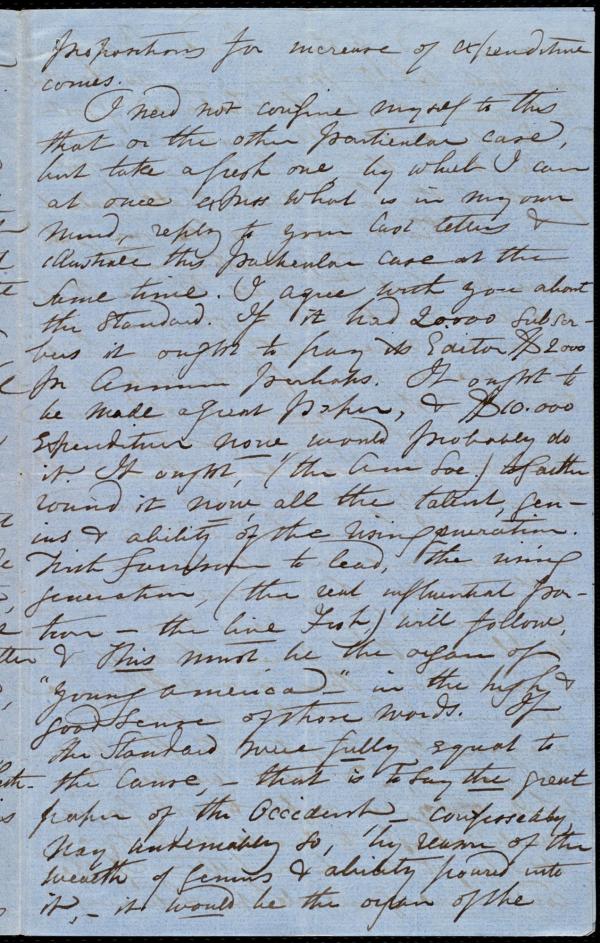 propositions for increase of expenditure
comes.
I need not confine myself to this
that or the other particular case,
but take a fresh one, by which I can
at once express what is in my own
mind, reply to your last letters &
illustrate this particular case at the
same time. I agree with you about
the Standard. If it had 20.000 subscri-
bers it ought to pay its Editor $2000
pr Annum perhaps. It ought to
be made a great paper, & $10.000
expenditure now would probably do
it. It ought, (the Am Soc) to gather
round it now, all the talent, gen-
ius & ability of the rising generation.
With Garrison to lead, the rising
generation, (the real influential por-
tion – the live Fish) will follow,
& This must be the organ of
"young America" in the high &
good sense of those words. If
the Standard were fully equal to
the Cause, – that is to say the great
paper of the Occident – confessedly
nay undeniably so, by reason of the
wealth of genius & ability poured into
it, – it would be the organ of the